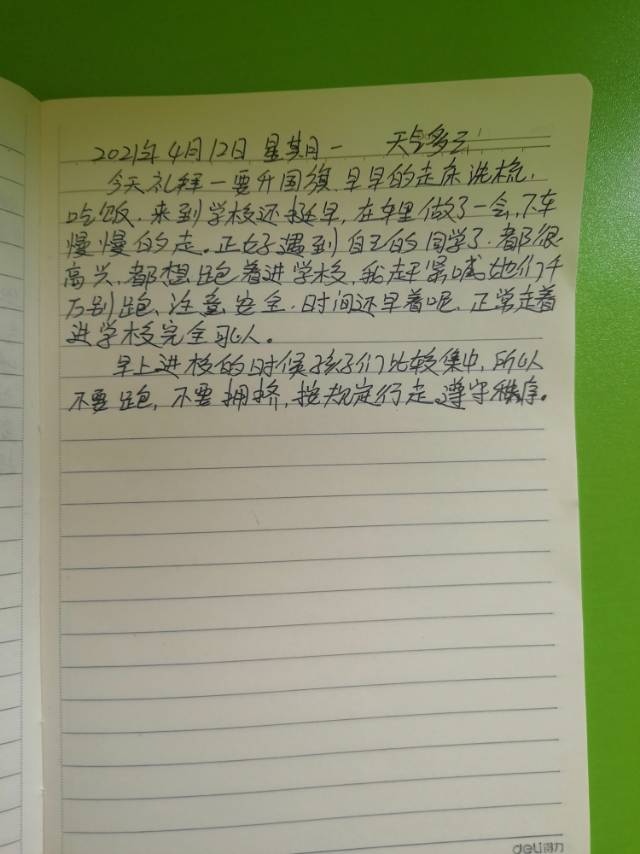 2021年4月12日 星期一 天气多云
今天礼拜一要升国旗.早早的走床洗梳.
吃饭.来到学校还挺早,在车里做了一会,下车
慢慢的走。正好遇到自己的同学了.都很
高兴,都想跑着进学校,我赶紧喊她们千
万别跑、注意安全.时间还早着呢、正常走着
进学校完全可以。
早上进校的时候孩子们比较集中,所以
不要跑,不要拥挤,按规定行走.遵守秩序。
deli得力